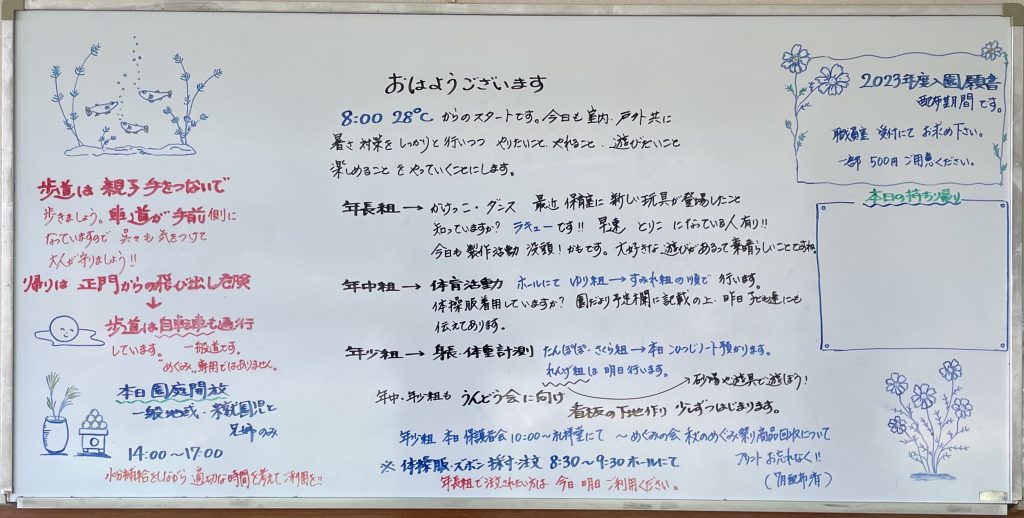 歩道は 親子手をつないで
歩きましょう。車道が手前側に
なっていますので 呉々も気をつけて
大人が守りましょう!!
帰りは 正門からの飛び出し危険
↓
歩道は自転車も通行
しています。 一般道です。
"めぐみ"専用ではありません。
本日 園庭開放
一般地域・未就園児と
兄姉のみ
14:00〜17:00
水分補給をしながら 適切な時間を考えてご利用を!!
おはようございます
8:00 28℃ からのスタートです。今日も室内・戸外共に
暑さ対策をしっかりと行いつつ やりたいこと やれること・遊びたいこと
楽しめることをやっていくことにします。
年長組→かけっこ・ダンス 最近 保育室に新しい玩具が登場したこと
知っていますか? ラキューです!! 早速 とりこ になっている人有り!!
今日も製作活動 没頭!かもです。大好きな遊びがあるって素晴らしいことですね
年中組→体育活動 ホールにて ゆり組→すみれ組の順で 行います。
体操服着用していますか? 園だより予定欄に記載の上、昨日子ども達にも
伝えてあります。
年少組→身長・体重計測 たんぽぽ・さくら組→本日ひつじノート預かります。
れんげ組は 明日行います。
→砂場や遊具で遊ぼう!
年中・年少組も うんどう会に向け
看板の下地作り 少しずつはじまります。
年少組 本日 保護者会 10:00〜礼拝堂にて 〜めぐみの会 秋のめぐみ祭り商品回収について
プリント お忘れなく!!
(7月配布済)
※ 体操服・ズボン 採寸・注文 8:30〜9:30 ホールにて
年長組で注文されたい方は 今日・明日ご利用ください。
2023年度入園願書
配布期間です。
職員室 受付にて お求め下さい。
一部 500円ご用意ください。
本日の持ち帰り